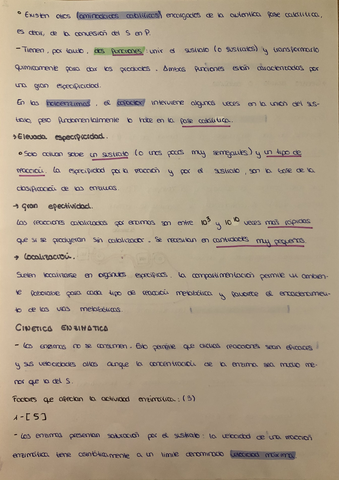 ° Existen otros (aminoácidos catalíticos) encargados de la auténtica fase catalítica,
es decir, de la conversión del S en P.
- Tienen, por tanto, dos funciones: unir el sustrato (o sustratos) y transformarlo
químicamente para dar los productos. Ambas funciones están caracterizadas por
una gran especificidad.
En las holoenzimas, el cofactor interviene algunas veces en la unión del sus-
trato, pero fundamentalmente lo hace en la fase catalítica.
→ Elevada especificidad.
° Solo actúan sobre un sustrato (o unos pocos muy semejantes) y un tipo de
reacción. La especificidad por la reacción y por el sustrato, son la base de la
clasificación de las enzimas.
→ Gran efectividad.
Las reacciones catalizadas por enzimas son entre 10³ y 10¹⁰ veces más rápidas
que si se produjeran sin catalizador. Se necesitan en cantidades muy pequeñas.
→ Localización.
Suelen localizarse en orgánulos específicos. La compartimentación permite un ambien-
te favorable para cada tipo de reacción metabólica y favorece el encadenamien-
to de las vías metabólicas.
CINÉTICA ENZIMÁTICA
- Las enzimas no se consumen. Esto permite que dichas reacciones sean eficaces
y sus velocidades altas aunque la concentración de la enzima sea mucho me-
nor que la del S.
Factores que afectan la actividad enzimática: (5)
1-[S]
- Las enzimas presentan saturación por el sustrato: la velocidad de una reacción
enzimática tiene asintóticamente a un límite denominado velocidad máxima.